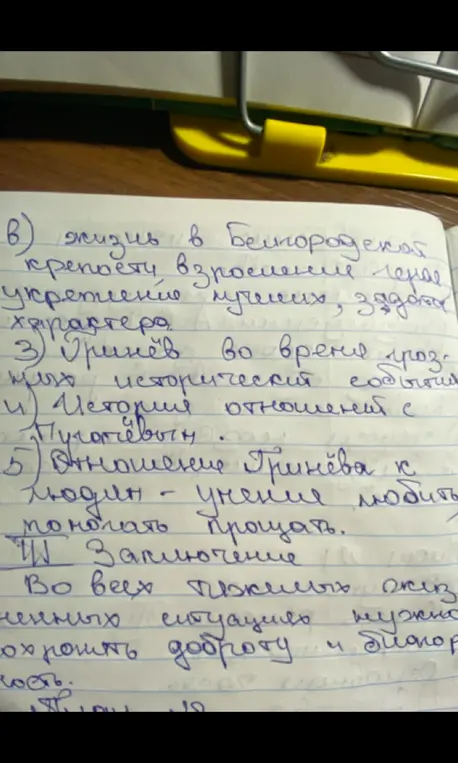 в) жизнь в Белгородской
крепости, взросление героя
укрепление лучших, задатков
характера.
3) Гринёв во время гроз-
ных исторический событий
4) История отношений с
Пугачёвын.
5) Отношение Гринёва к
людян - умение любить,
помогать прощать.
III Заключение
Во всех тяжелых жиз
ненных ситуациях нужно
сохронить доброту и благор
ность.